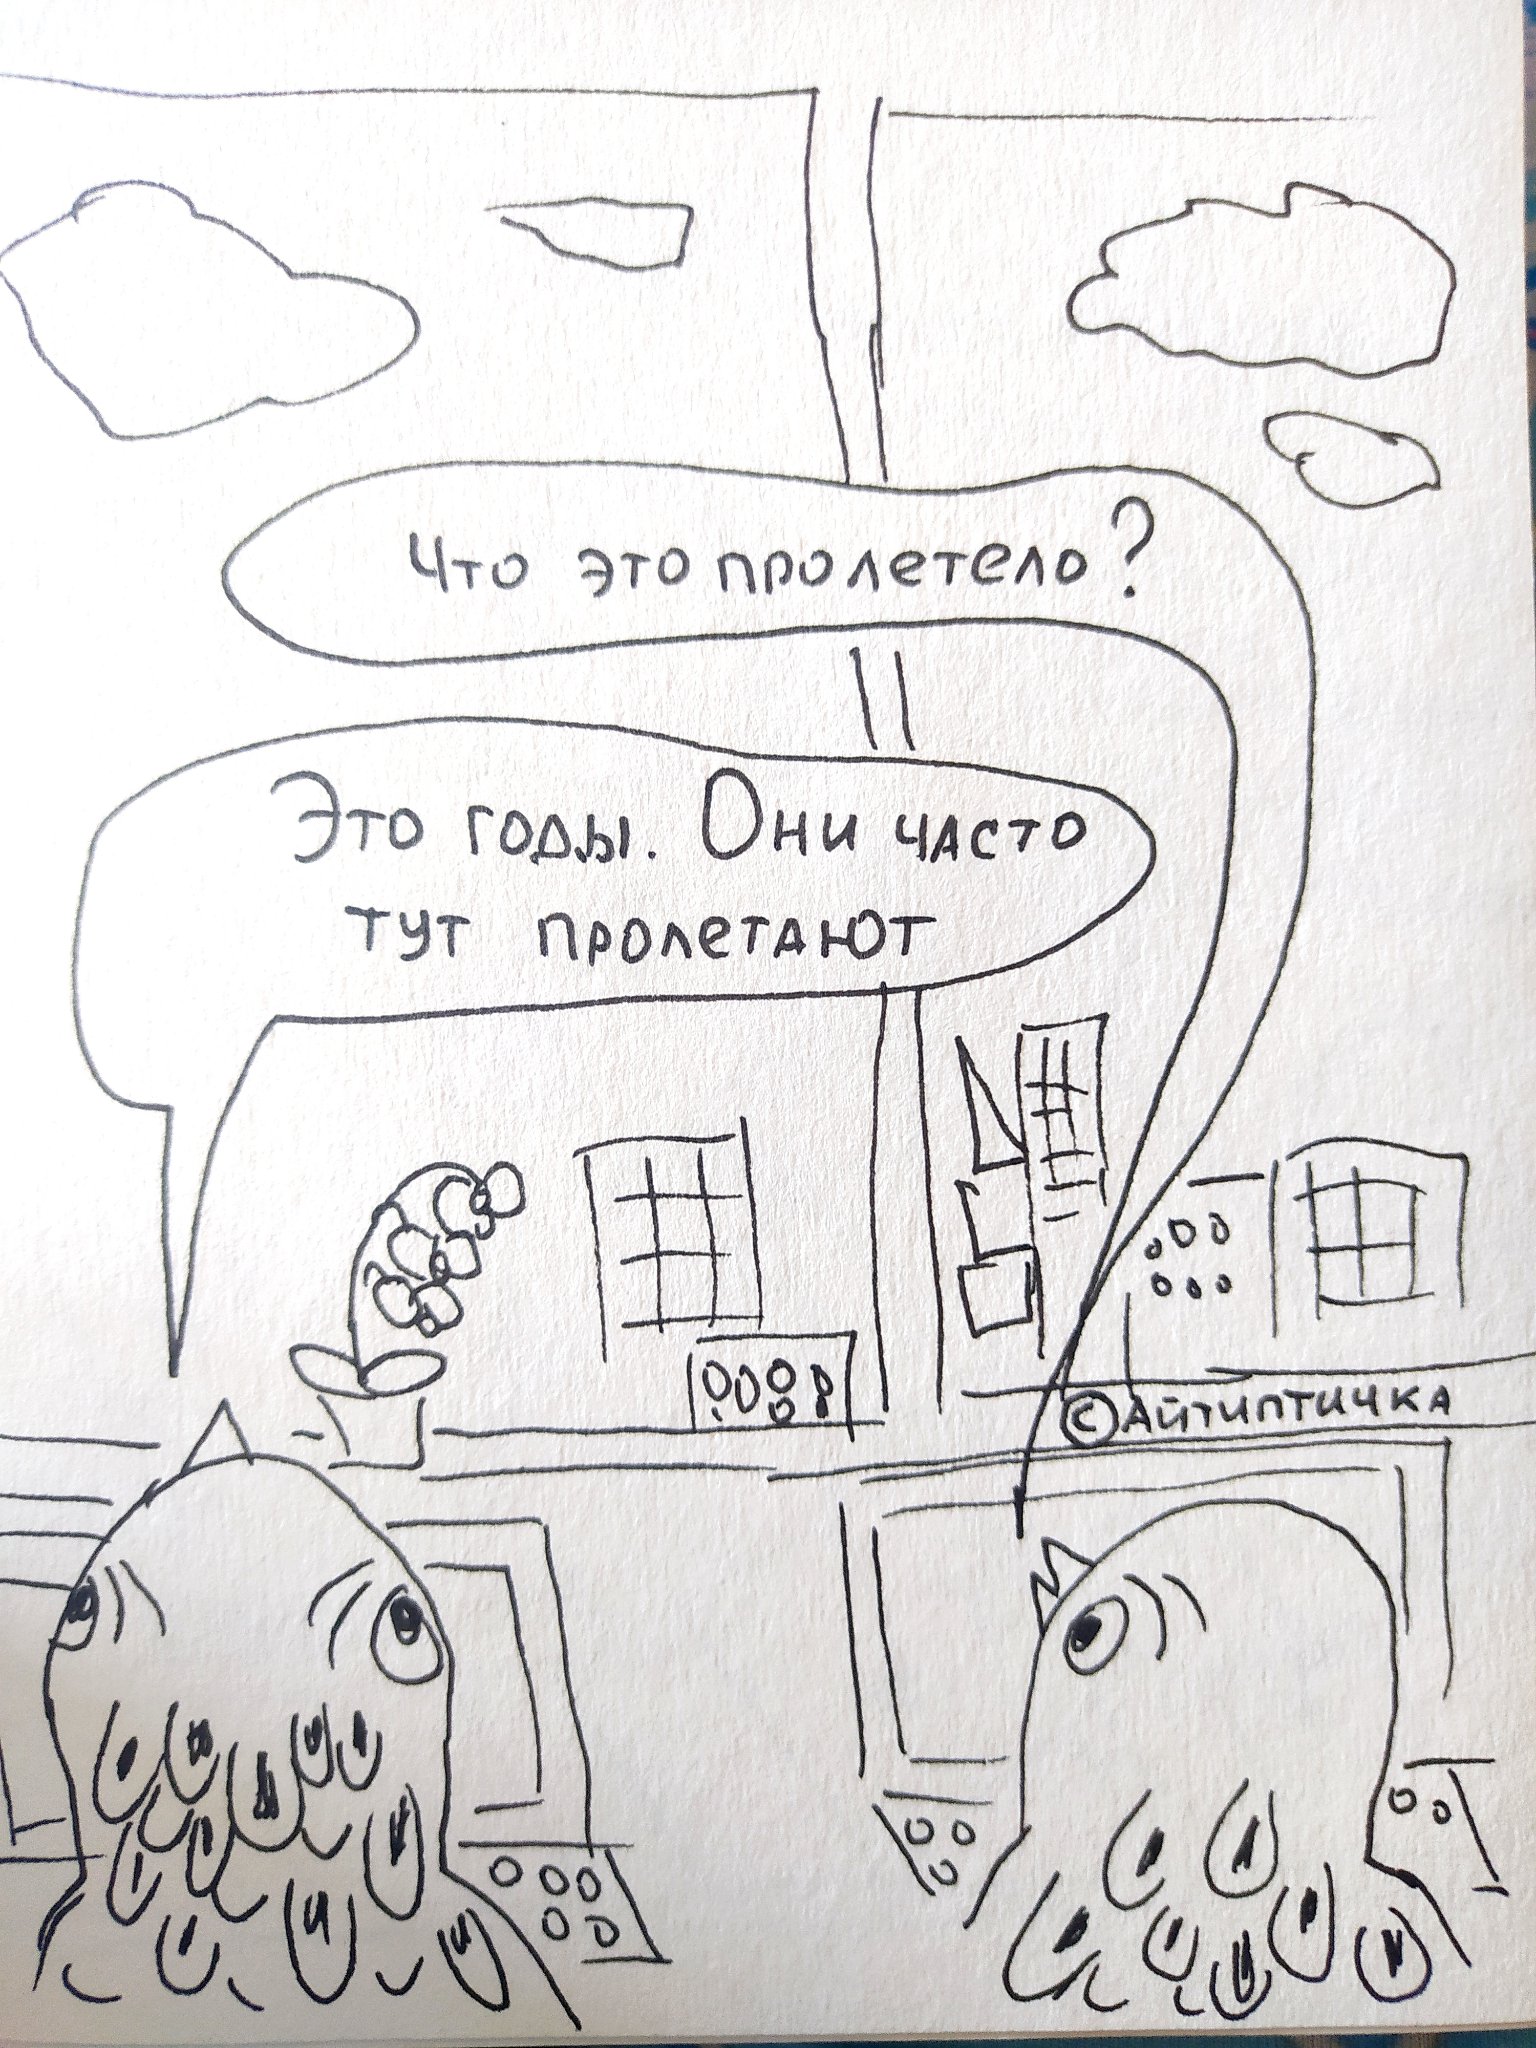 Что это пролетело?
Это годы. Они часто
тут пролетают
©Айтиптичка